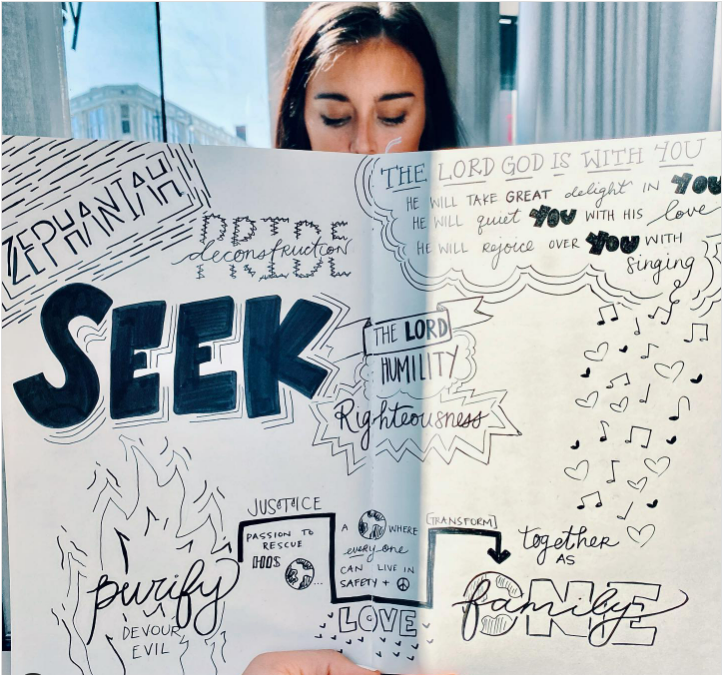 ZEPHANIAH
PRIDE
deconstruction
SEEK
THE LORD
HUMILITY
Righteousness
THE LORD GOD IS WITH YOU
HE WILL TAKE GREAT delight IN YOU
HE WILL quiet YOU WITH HIS love
HE WILL rejoice OVER YOU WITH
singing
purify
DEVOUR
EVIL
JUSTICE
PASSION TO
RESCUE
HIS
...
A WHERE
everyone
CAN LIVE IN
SAFETY +
LOVE
[TRANSFORM]
together
AS
ONE
family